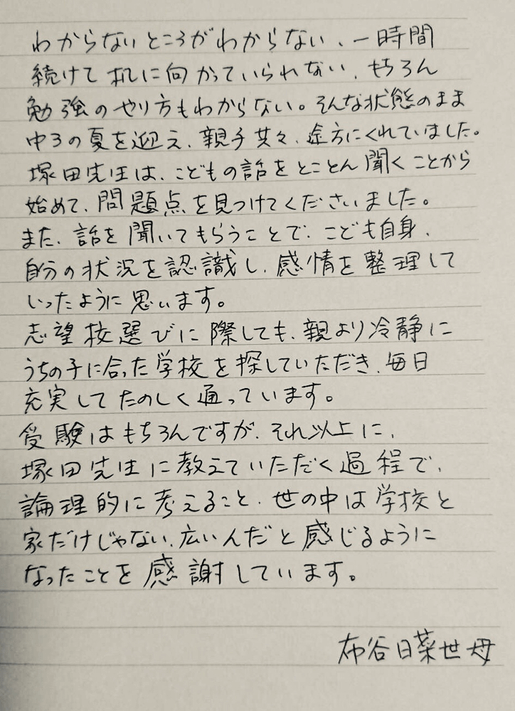 わからないところがわからない、一時間
続けて机に向かっていられない、もちろん
勉強のやり方もわからない。そんな状態のまま
中3の夏を迎え、親子共々、途方にくれていました。
塚田先生は、こどもの話をとことん聞くことから
始めて、問題点を見つけてくださいました。
また、話を聞いてもらうことで、こども自身、
自分の状況を認識し、感情を整理して
いったように思います。
志望校選びに際しても、親より冷静に
うちの子に合った学校を探していただき、毎日
充実してたのしく通っています。
受験はもちろんですが、それ以上に、
塚田先生に教えていただく過程で、
論理的に考えること、世の中は学校と
家だけじゃない、広いんだと感じるように
なったことを感謝しています。
布谷日菜世母